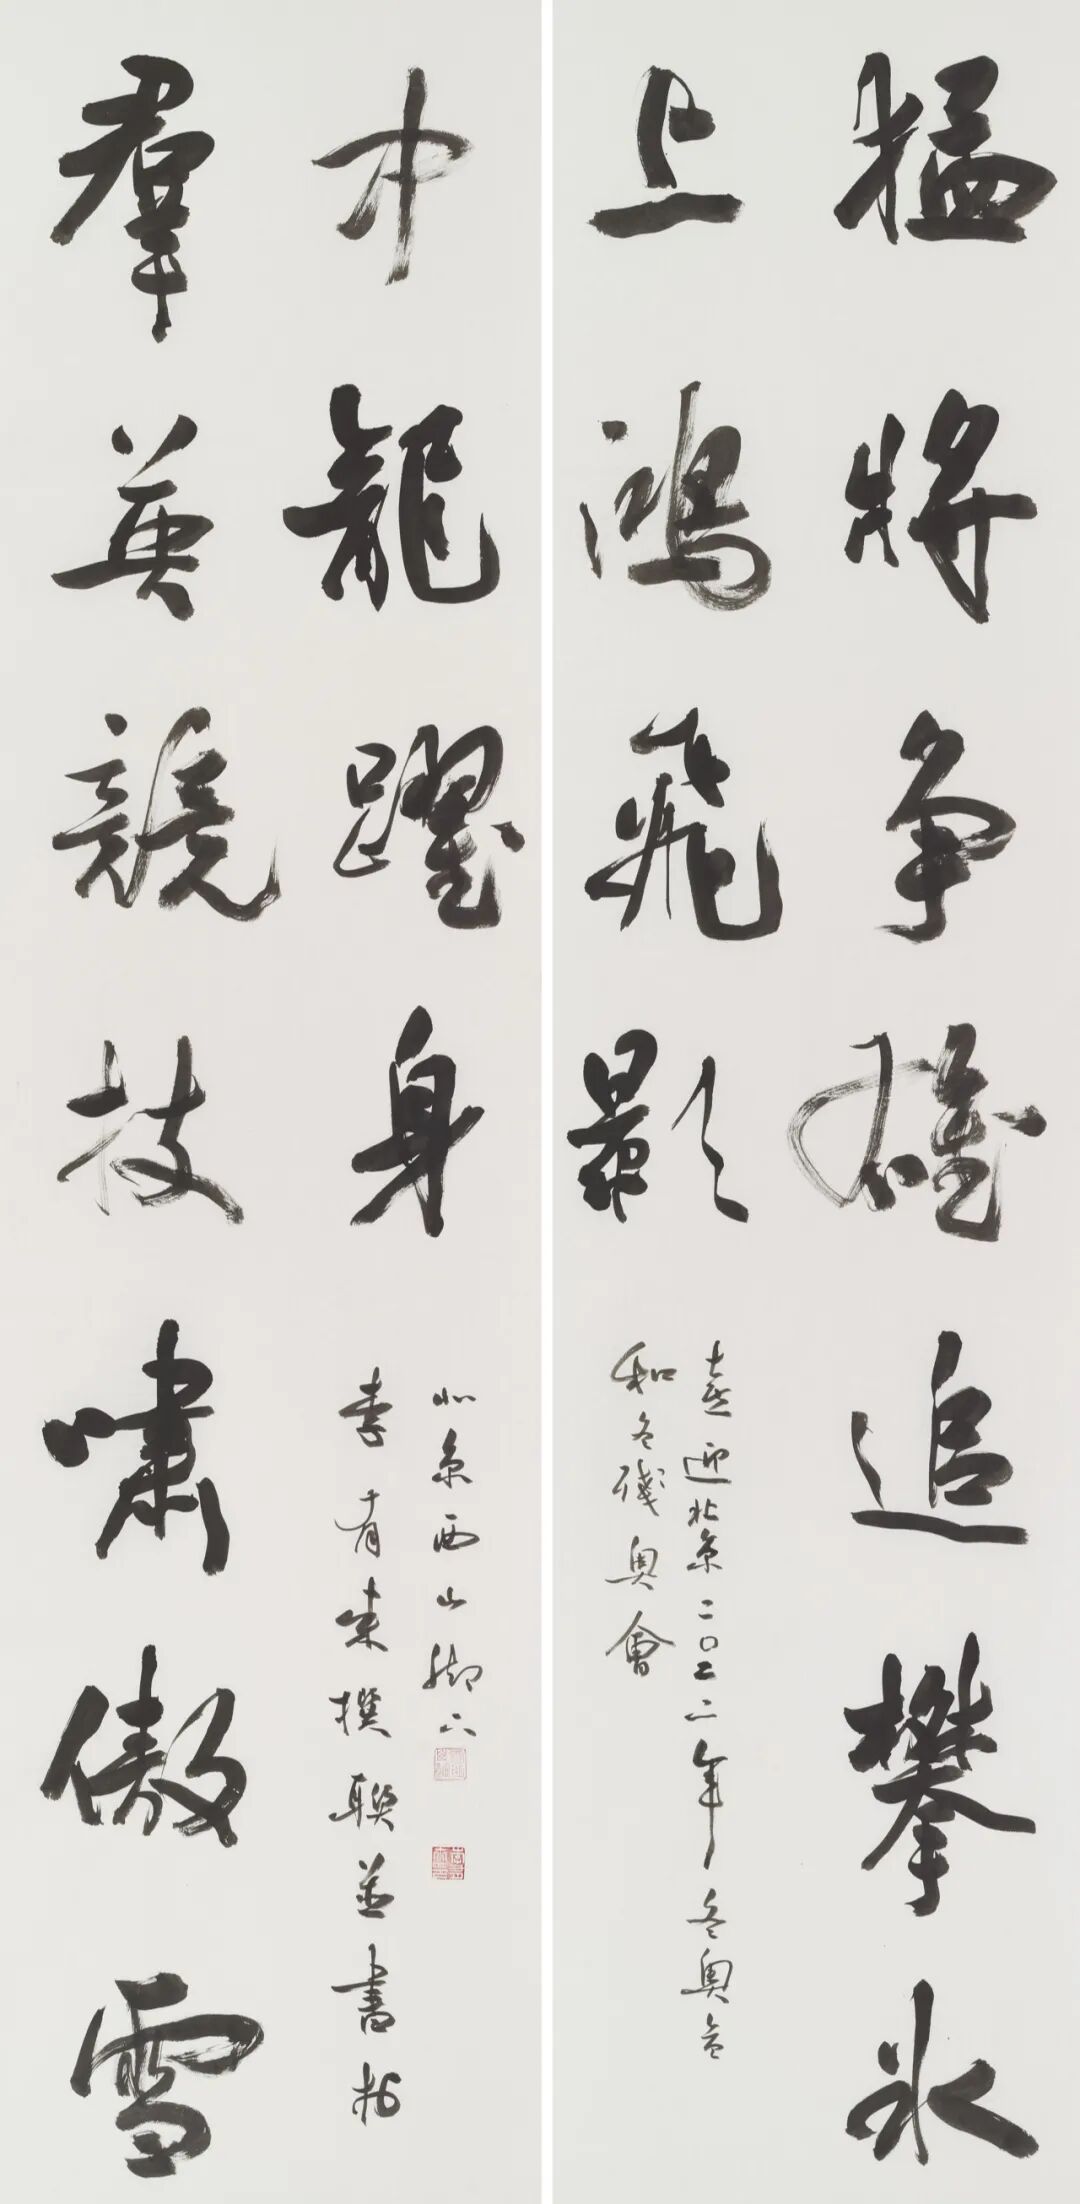 猛將争雄追攀氷
上鴻飛影
喜迎北京二〇二二年冬奥会
和冬殘奥會
羣英競技嘯傲雪
中龍躍身
李有来撰聯並書於
北京西山脚下